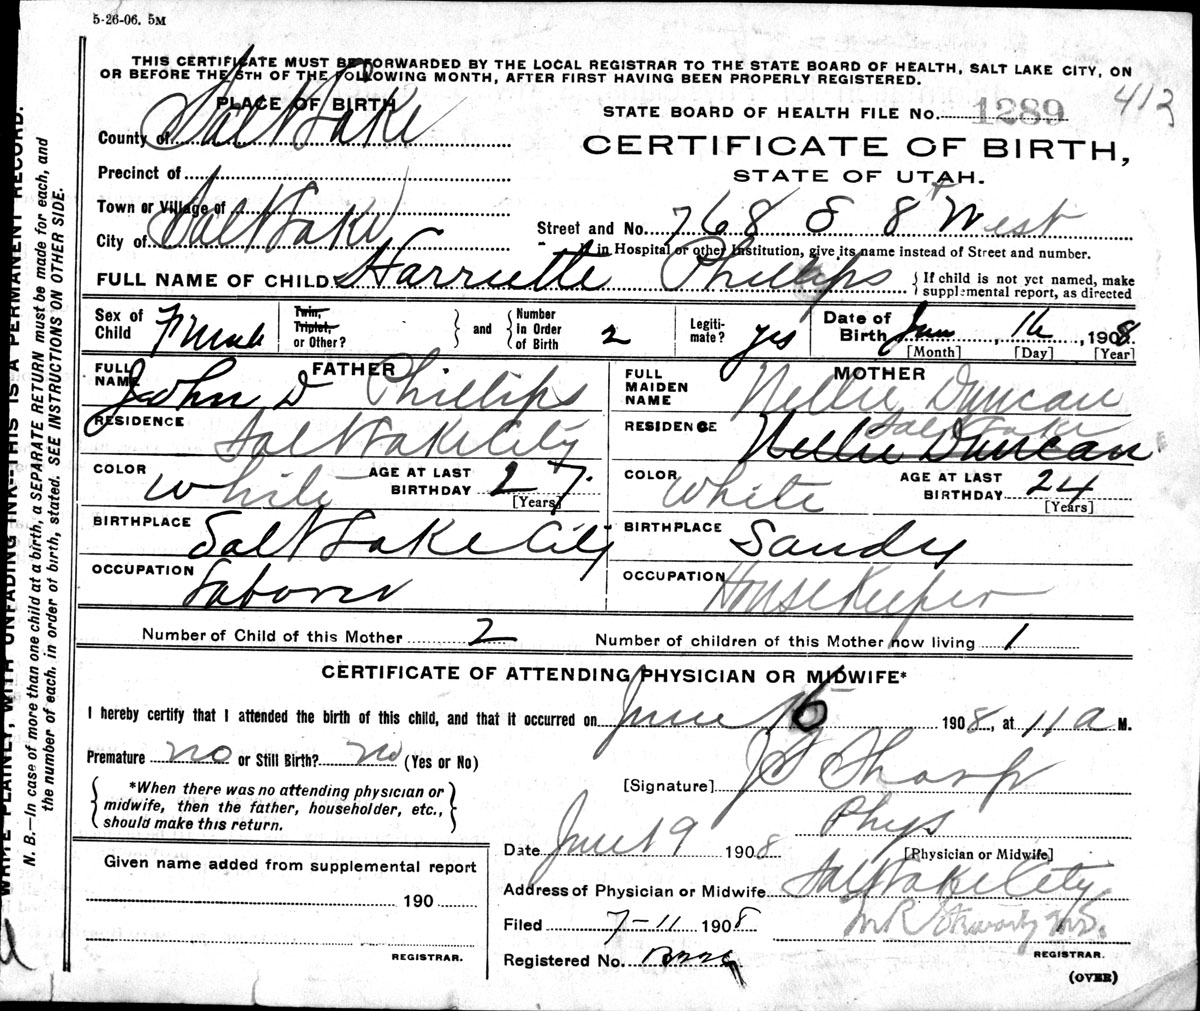 5-26-06. 5M
THIS CERTIFICATE MUST BE FORWARDED BY THE LOCAL REGISTRAR TO THE STATE BOARD OF HEALTH, SALT LAKE CITY, ON
OR BEFORE THE 5TH OF THE FOLLOWING MONTH, AFTER FIRST HAVING BEEN PROPERLY REGISTERED.
PLACE OF BIRTH
County of Salt Lake
Precinct of
Town or Village of
City of Salt Lake
STATE BOARD OF HEALTH FILE No. 1289 413
CERTIFICATE OF BIRTH,
STATE OF UTAH.
Street and No. 768 S 8th West
in Hospital or other Institution, give its name instead of Street and number.
FULL NAME OF CHILD Harriette Phillips { If child is not yet named, make supplemental report, as directed
Sex of Child Female
Twin, Triplet, or Other? } and { Number in Order of Birth 2
Legiti- mate? yes
Date of Birth June 16, 1908
[Month] [Day] [Year]
FATHER
FULL NAME John D Phillips
RESIDENCE Salt Lake City
COLOR White AGE AT LAST BIRTHDAY 27 [Years]
BIRTHPLACE Salt Lake City
OCCUPATION Laborer
MOTHER
FULL MAIDEN NAME Nellie Duncan
RESIDENCE Nellie Duncan Salt Lake
COLOR White AGE AT LAST BIRTHDAY 24 [Years]
BIRTHPLACE Sandy
OCCUPATION HouseKeeper
Number of Child of this Mother 2 Number of children of this Mother now living 1
CERTIFICATE OF ATTENDING PHYSICIAN OR MIDWIFE*
I hereby certify that I attended the birth of this child, and that it occurred on June 16 1908, at 11 a M.
Premature no or Still Birth? no (Yes or No)
{ *When there was no attending physician or midwife, then the father, householder, etc., should make this return. }
[Signature] J F Sharp
Phys
[Physician or Midwife]
Date June 19 1908
Address of Physician or Midwife Salt Lake City
Filed 7-11 1908
Registered No.
REGISTRAR.
(OVER)
Given name added from supplemental report
190
REGISTRAR.
WRITE PLAINLY, WITH UNFADING INK--THIS IS A PERMANENT RECORD.
N. B.—In case of more than one child at a birth, a SEPARATE RETURN must be made for each, and
the number of each, in order of birth, stated. SEE INSTRUCTIONS ON OTHER SIDE.